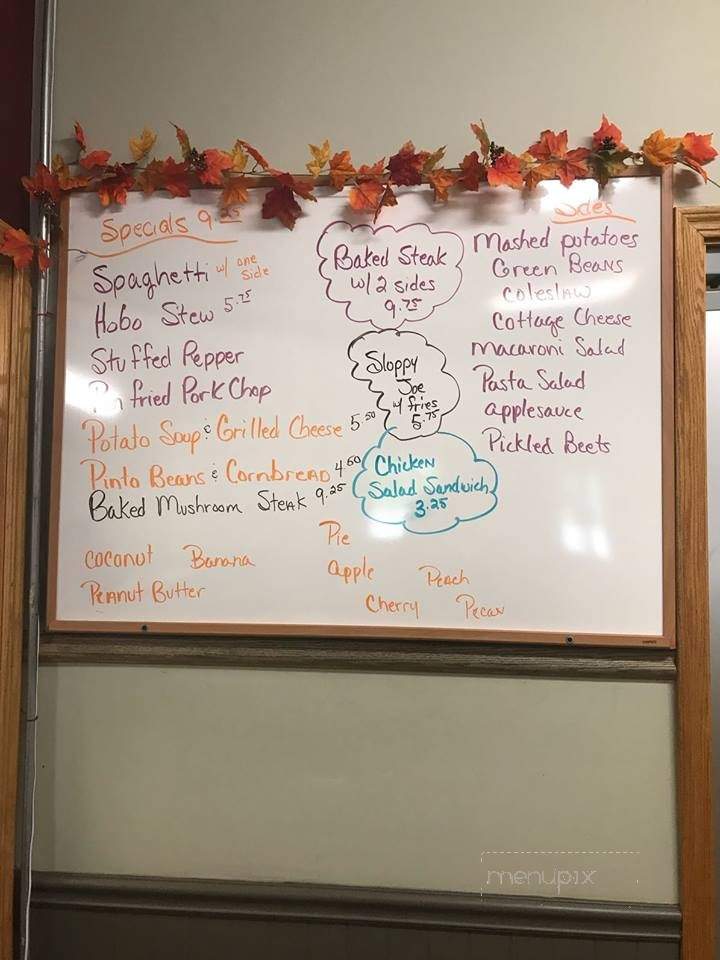 Specials 9.25
Spaghetti w/ one side
Hobo Stew 5.75
Stuffed Pepper
Pan fried Pork Chop
Potato Soup & Grilled Cheese 5.50
Pinto Beans & Cornbread 4.60
Baked Mushroom Steak 9.25
Baked Steak
w/ 2 sides
9.75
Sloppy
Joe
w/ fries
5.75
Chicken
Salad Sandwich
3.25
Sides
Mashed potatoes
Green Beans
coleslaw
Cottage Cheese
Macaroni Salad
Pasta Salad
applesauce
Pickled Beets
Pie
coconut Banana apple Peach
Peanut Butter Cherry Pecan
menupix